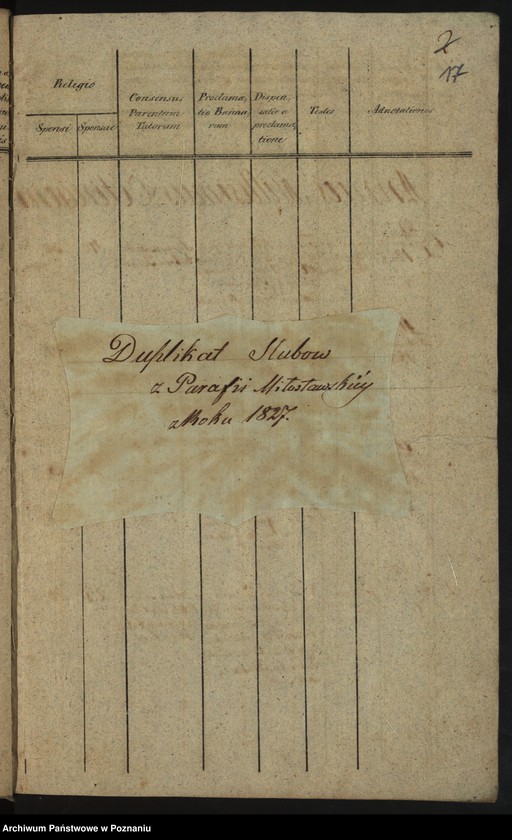 2
17
Religio
Sponsi Sponsae
Consensus
Parentum
Tutorum
Proclama,
tio Banno
rum
Dispen,
satio a
proclama,
tione
Testes
Adnotationes
Duplikat Slubow
z Parafii Miłosławskiéy
z Roku 1827.
Archiwum Państwowe w Poznaniu